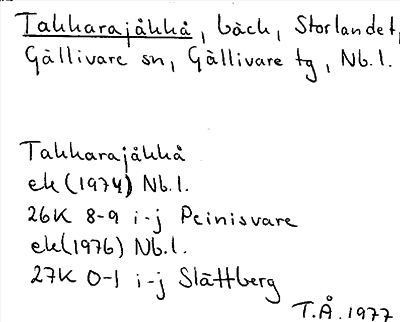 Takkarajåkkå, bäck, Storlandet,
Gällivare sn, Gällivare tg, Nb.l.
Takkarajåkkå
ek (1974) Nb.l.
26K 8-9 i-j Peinisvare
ek (1976) Nb.l.
27K 0-1 i-j Slättberg
T.Å. 1977